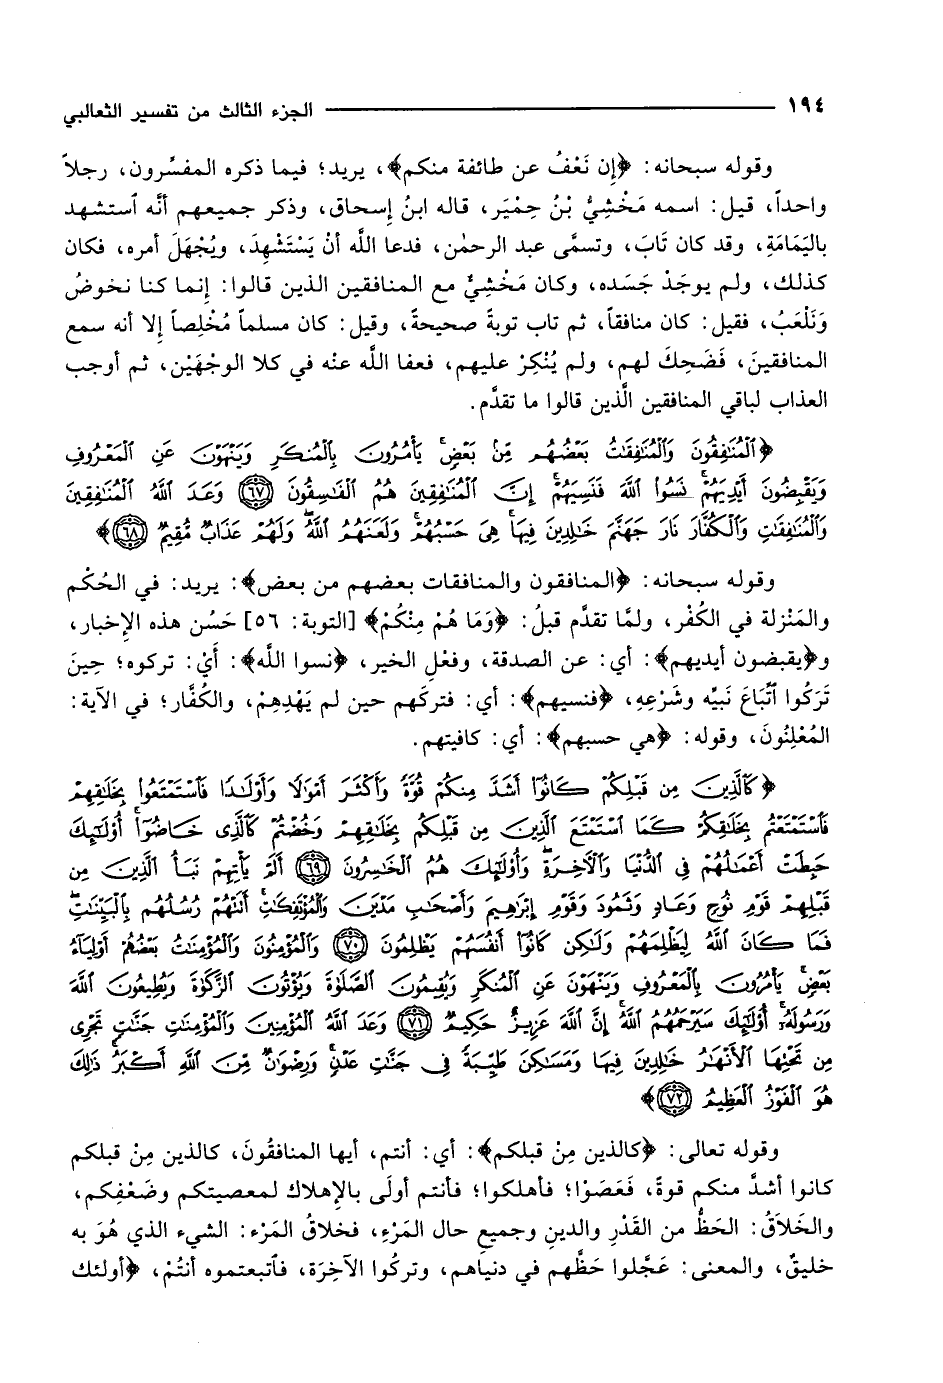 ١٩٤ ــــــــــ الجزء الثالث من تفسير الثعالبي
وقوله سبحانه: ﴿إِن نَعْفُ عن طائفة منكم﴾، يريد؛ فيما ذكره المفسِّرون، رجلاً
واحداً، قيل: اسمه مَخْشِيُّ بْنُ حِمْيَر، قاله ابنُ إسحاق، وذكر جميعهم أنَّه ٱستشهد
باليَمَامَةِ، وقد كان تَابَ، وتسمَّى عبد الرحمٰن، فدعا اللَّه أنْ يَسْتَشْهِدَ، ويُجْهَلَ أمره، فكان
كذلك، ولم يوجَدْ جَسَده، وكان مَخْشِيٌّ مع المنافقين الذين قالوا: إِنما كنا نخوضُ
وَنَلْعَبُ، فقيل: كان منافقاً، ثم تاب توبةً صحيحةً، وقيل: كان مسلماً مُخْلِصاً إلا أنه سمع
المنافقينَ، فَضَحِكَ لهم، ولم يُنْكِرْ عليهم، فعفا اللَّه عنْه في كلا الوجْهَيْن، ثم أوجب
العذاب لباقي المنافقين الَّذين قالوا ما تقدَّم.
﴿ٱلْمُنَٰفِقُونَ وَٱلْمُنَٰفِقَٰتُ بَعْضُهُم مِّنۢ بَعْضٍ يَأْمُرُونَ بِٱلْمُنكَرِ وَيَنْهَوْنَ عَنِ ٱلْمَعْرُوفِ
وَيَقْبِضُونَ أَيْدِيَهُمْ نَسُوا۟ ٱللَّهَ فَنَسِيَهُمْ إِنَّ ٱلْمُنَٰفِقِينَ هُمُ ٱلْفَٰسِقُونَ ٦٧ وَعَدَ ٱللَّهُ ٱلْمُنَٰفِقِينَ
وَٱلْمُنَٰفِقَٰتِ وَٱلْكُفَّارَ نَارَ جَهَنَّمَ خَٰلِدِينَ فِيهَا هِىَ حَسْبُهُمْ وَلَعَنَهُمُ ٱللَّهُ وَلَهُمْ عَذَابٌ مُّقِيمٌ ٦٨﴾
وقوله سبحانه: ﴿المنافقون والمنافقات بعضهم من بعض﴾: يريد: في الحُكْم
والمَنْزلة في الكُفْر، ولمَّا تقدَّم قبلُ: ﴿وَمَا هُمْ مِنْكُمْ﴾ [التوبة: ٥٦] حَسُن هذه الإِخبار،
و﴿يقبضون أيديهم﴾: أي: عن الصدقة، وفعْلِ الخير، ﴿نسوا اللَّه﴾: أَيْ: تركوه؛ حِينَ
تَرَكُوا ٱتِّبَاعَ نَبيِّه وشَرْعِهِ، ﴿فنسيهم﴾: أي: فتركَهم حين لم يَهْدِهِمْ، والكُفَّار؛ في الآية:
المُعْلِنُونَ، وقوله: ﴿هي حسبهم﴾: أي: كافيتهم.
﴿كَٱلَّذِينَ مِن قَبْلِكُمْ كَانُوٓا۟ أَشَدَّ مِنكُمْ قُوَّةً وَأَكْثَرَ أَمْوَٰلًا وَأَوْلَٰدًا فَٱسْتَمْتَعُوا۟ بِخَلَٰقِهِمْ
فَٱسْتَمْتَعْتُم بِخَلَٰقِكُمْ كَمَا ٱسْتَمْتَعَ ٱلَّذِينَ مِن قَبْلِكُم بِخَلَٰقِهِمْ وَخُضْتُمْ كَٱلَّذِى خَاضُوٓا۟ أُو۟لَٰٓئِكَ
حَبِطَتْ أَعْمَٰلُهُمْ فِى ٱلدُّنْيَا وَٱلْءَاخِرَةِ وَأُو۟لَٰٓئِكَ هُمُ ٱلْخَٰسِرُونَ ٦٩ أَلَمْ يَأْتِهِمْ نَبَأُ ٱلَّذِينَ مِن
قَبْلِهِمْ قَوْمِ نُوحٍ وَعَادٍ وَثَمُودَ وَقَوْمِ إِبْرَٰهِيمَ وَأَصْحَٰبِ مَدْيَنَ وَٱلْمُؤْتَفِكَٰتِ أَتَتْهُمْ رُسُلُهُم بِٱلْبَيِّنَٰتِ
فَمَا كَانَ ٱللَّهُ لِيَظْلِمَهُمْ وَلَٰكِن كَانُوٓا۟ أَنفُسَهُمْ يَظْلِمُونَ ٧٠ وَٱلْمُؤْمِنُونَ وَٱلْمُؤْمِنَٰتُ بَعْضُهُمْ أَوْلِيَآءُ
بَعْضٍ يَأْمُرُونَ بِٱلْمَعْرُوفِ وَيَنْهَوْنَ عَنِ ٱلْمُنكَرِ وَيُقِيمُونَ ٱلصَّلَوٰةَ وَيُؤْتُونَ ٱلزَّكَوٰةَ وَيُطِيعُونَ ٱللَّهَ
وَرَسُولَهُۥٓ أُو۟لَٰٓئِكَ سَيَرْحَمُهُمُ ٱللَّهُ إِنَّ ٱللَّهَ عَزِيزٌ حَكِيمٌ ٧١ وَعَدَ ٱللَّهُ ٱلْمُؤْمِنِينَ وَٱلْمُؤْمِنَٰتِ جَنَّٰتٍ تَجْرِى
مِن تَحْتِهَا ٱلْأَنْهَٰرُ خَٰلِدِينَ فِيهَا وَمَسَٰكِنَ طَيِّبَةً فِى جَنَّٰتِ عَدْنٍ وَرِضْوَٰنٌ مِّنَ ٱللَّهِ أَكْبَرُ ذَٰلِكَ
هُوَ ٱلْفَوْزُ ٱلْعَظِيمُ ٧٢﴾
وقوله تعالى: ﴿كالذين مِنْ قبلكم﴾: أي: أنتم، أيها المنافقُونَ، كالذين مِنْ قبلكم
كانوا أشدَّ منكم قوةً، فَعَصَوْا؛ فأهلكوا؛ فأنتم أولَى بالإِهلاك لمعصيتكم وضَعْفِكم،
والخَلاَقُ: الحَظُّ من القَدْرِ والدينِ وجميعِ حال المَرْءِ، فخلاقُ المَرْء: الشيء الذي هُوَ به
خليقٌ، والمعنى: عَجَّلوا حَظَّهم في دنياهم، وتركُوا الآخِرَة، فٱتبعتموه أنتُمْ، ﴿أولئك